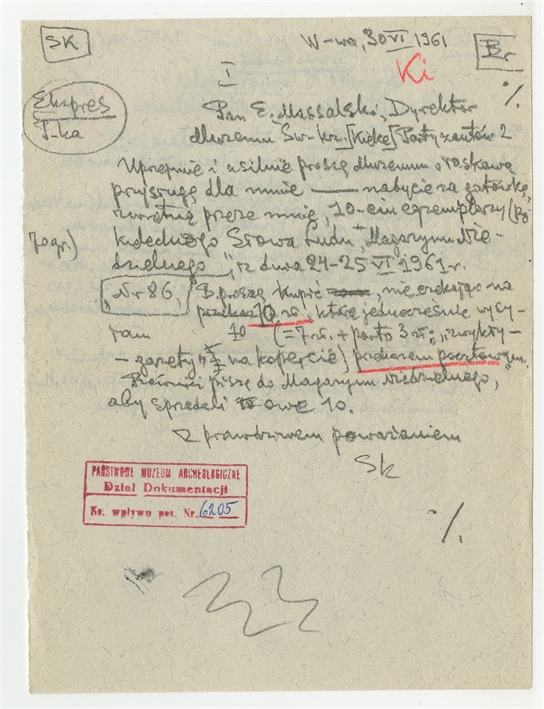 SK
W-wa, 30 VI 1961
Br
Ki
I
%
Ekspres
P-ka
Pan E. Massalski, Dyrektor
Muzeum Św-krz. [Kielce] Partyzantów 2
Uprzejmie i usilnie proszę Muzeum o łaskawą
przysługę dla mnie — nabycie za gotówkę,
zwrotną przeze mnie, 10-ciu egzemplarzy (po
70 gr.)
kieleckiego Słowa Ludu, "Magazynu Nie-
dzielnego", z dnia 24-25 VI 1961 r.
"Nr 86"
B. proszę kupić, nie czekając na
przekaz 10 zł., które jednocześnie wysy-
łam 10 (= 7 zł. + porto 3 zł.: "zwykły-
na kopercie) przekazem pocztowym.
piszę do Magazynu Niedzielnego,
aby sprzedali owe 10.
Z prawdziwem poważaniem
Sk
PAŃSTWOWE MUZEUM ARCHEOLOGICZNE
Dział Dokumentacji
Kr. wpływo not. Nr. 6205
%